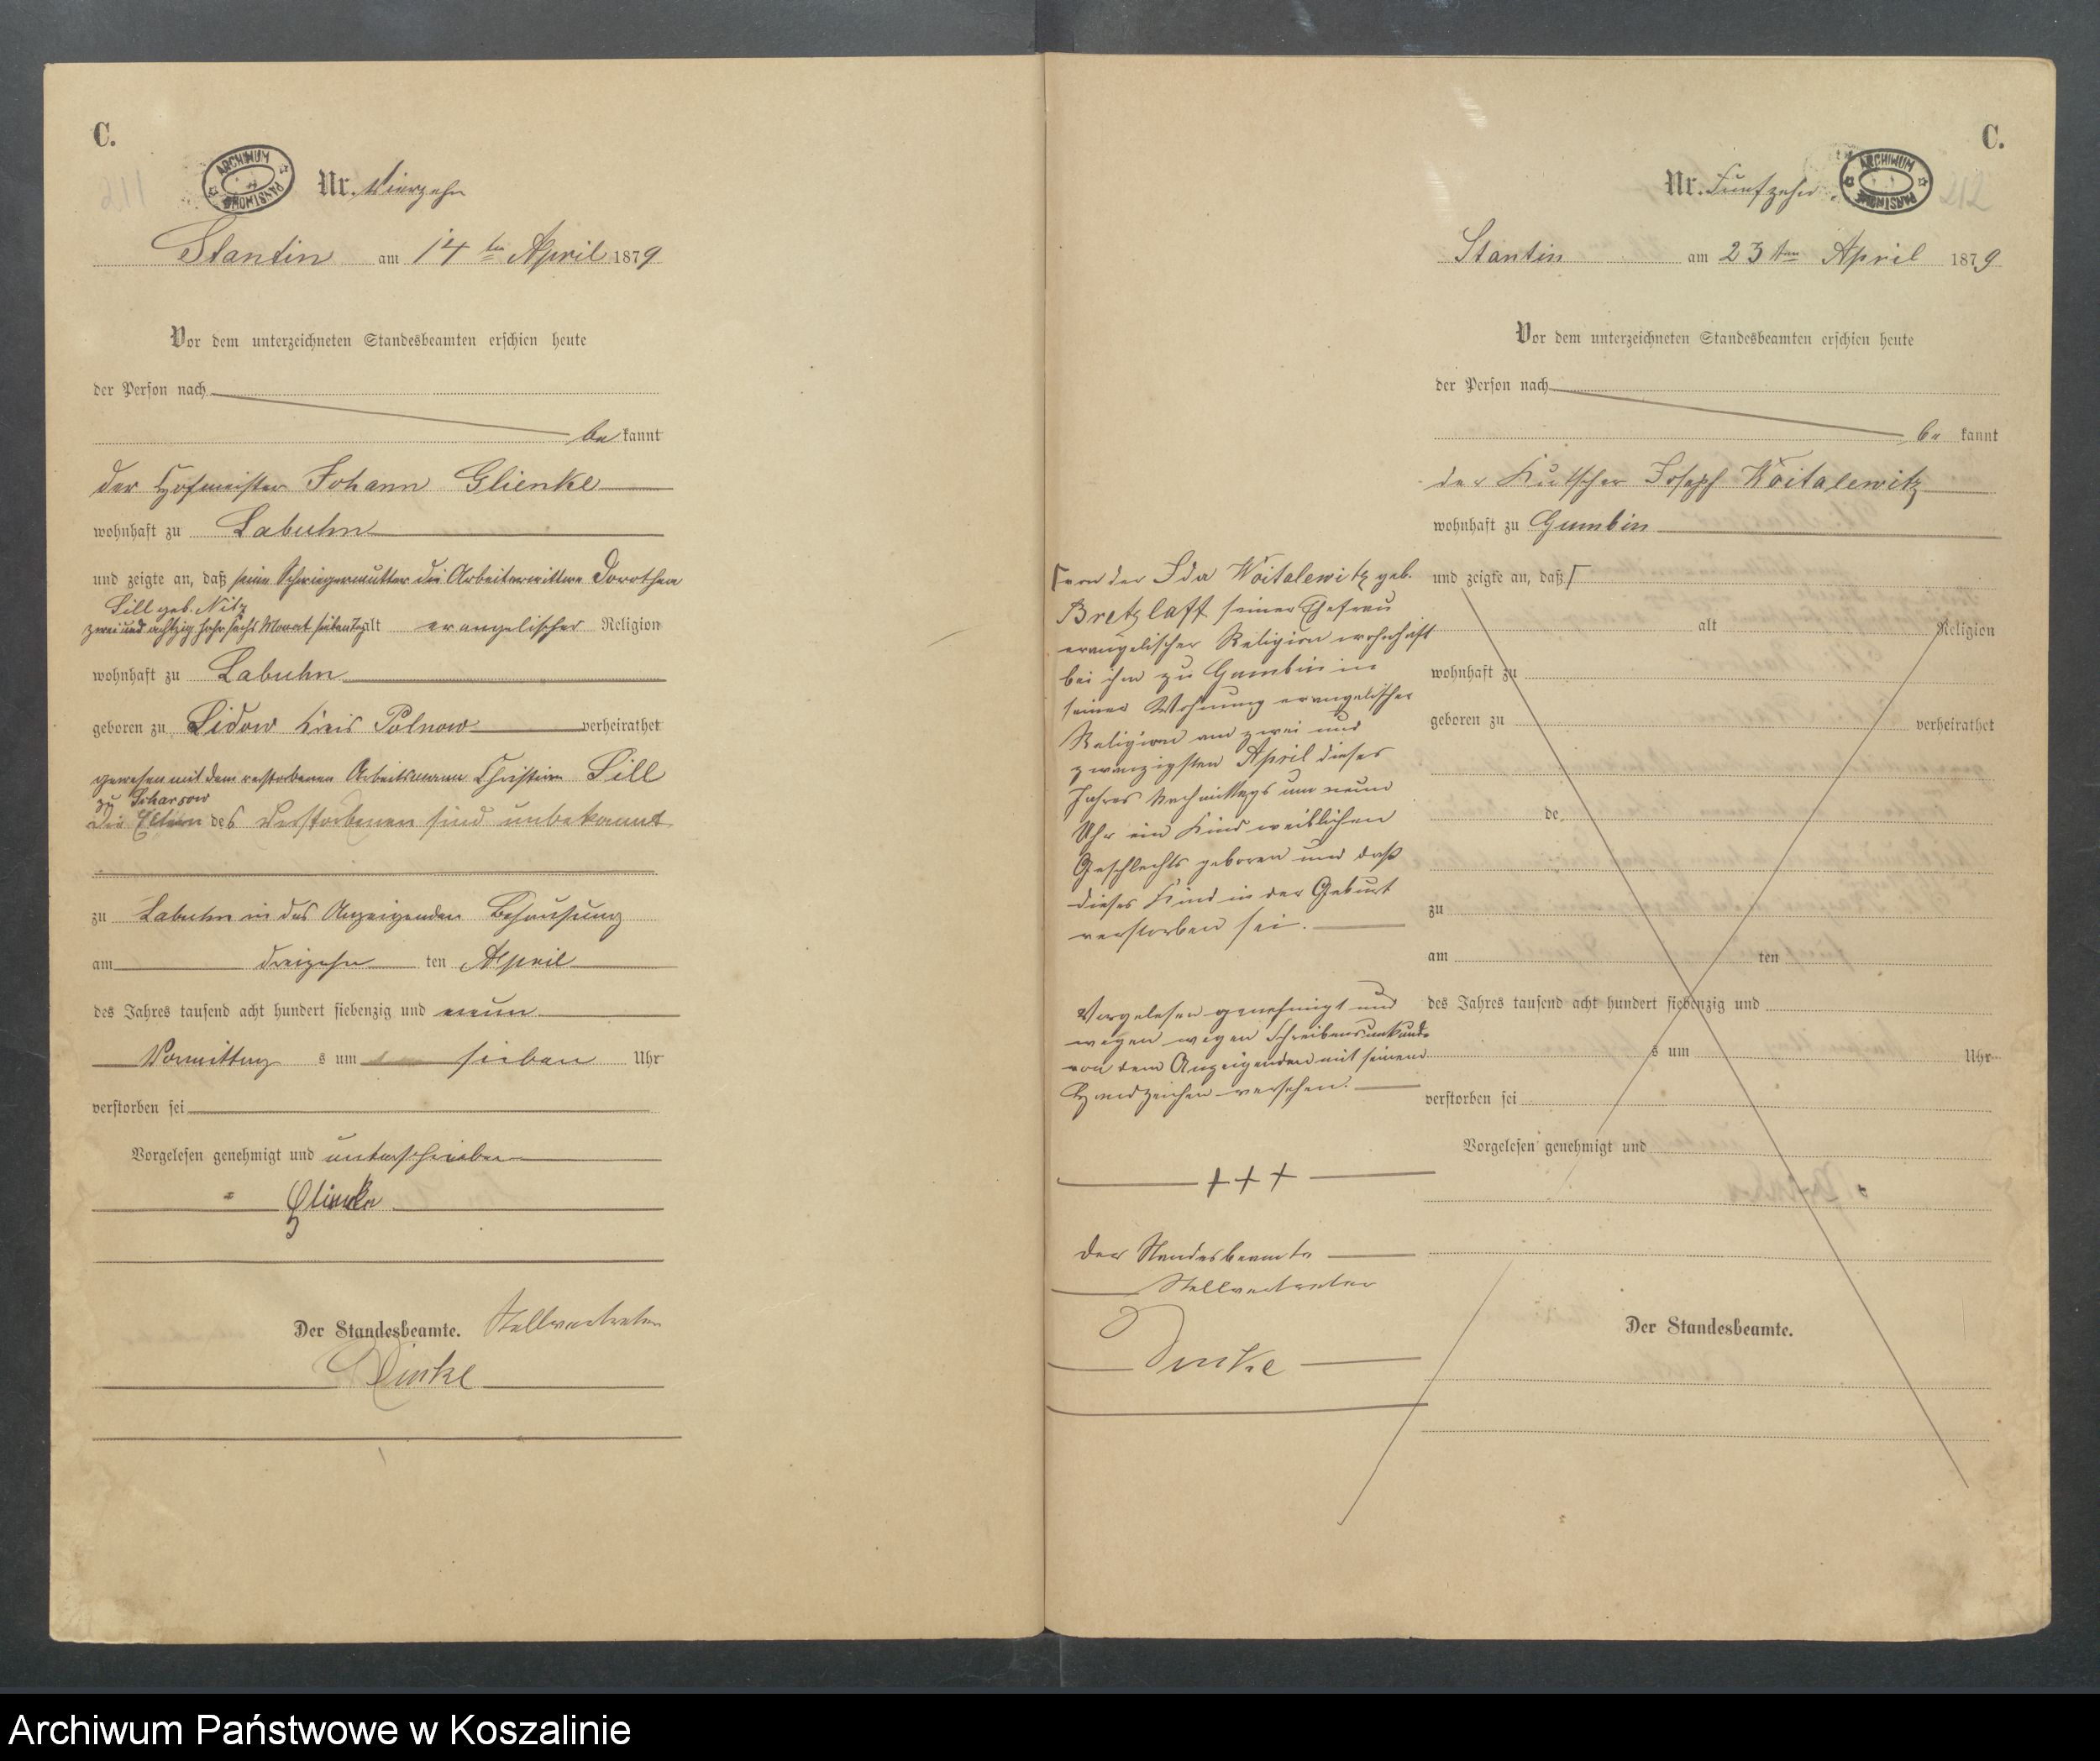 C.
ARCHIWUM PAŃSTWOWE
Nr. Vierzehn
Stantin am 14 ten April 1879
Vor dem unterzeichneten Standesbeamten erschien heute
der Person nach
be kannt
der Hofmeister Johann Glienke
wohnhaft zu Labuhn
und zeigte an, daß seine Schwiegermutter die Arbeiterwittwe Dorothea
Sill geb. Nitz
zwei und achtzig Jahr sechs Monat sieben Tag alt evangelischer Religion
wohnhaft zu Labuhn
geboren zu Sidow Kreis Polnow verheirathet
gewesen mit dem verstorbenen Arbeitsmann Christian Sill
zu Scharsow
die Eltern des Verstorbenen sind unbekannt
zu Labuhn in des Anzeigenden Behausung
am dreizehn ten April
des Jahres tausend acht hundert siebenzig und neun
Vormittag s um sieben Uhr
verstorben sei
Vorgelesen genehmigt und unterschrieben
Glienke
Der Standesbeamte. Stellvertreter
C.
Nr. Fünfzehn.
ARCHIWUM PAŃSTWOWE
212
Stantin am 23 ten April 1879
Vor dem unterzeichneten Standesbeamten erschien heute
der Person nach
be kannt
der Kutscher Joseph Woitalewitz
wohnhaft zu Gumbin
und zeigte an, daß
alt Religion
wohnhaft zu
geboren zu verheirathet
de
zu
am ten
des Jahres tausend acht hundert siebenzig und
s um Uhr
verstorben sei
Vorgelesen genehmigt und
Der Standesbeamte.
von der Ida Woitalewitz geb.
Bretzlaff seiner Ehefrau
evangelischer Religion wohnhaft
bei ihm zu Gumbin in
seiner Wohnung evangelischer
Religion am zwei und
zwanzigsten April dieses
Jahres Nachmittags um neun
Uhr ein Kind weiblichen
Geschlechts geboren und daß
dieses Kind in der Geburt
verstorben sei.
Vorgelesen genehmigt und
wegen wegen Schreibensunkunde
von dem Anzeigenden mit seinem
Handzeichen versehen.
+++
Der Standesbeamte
Stellvertreter
Archiwum Państwowe w Koszalinie